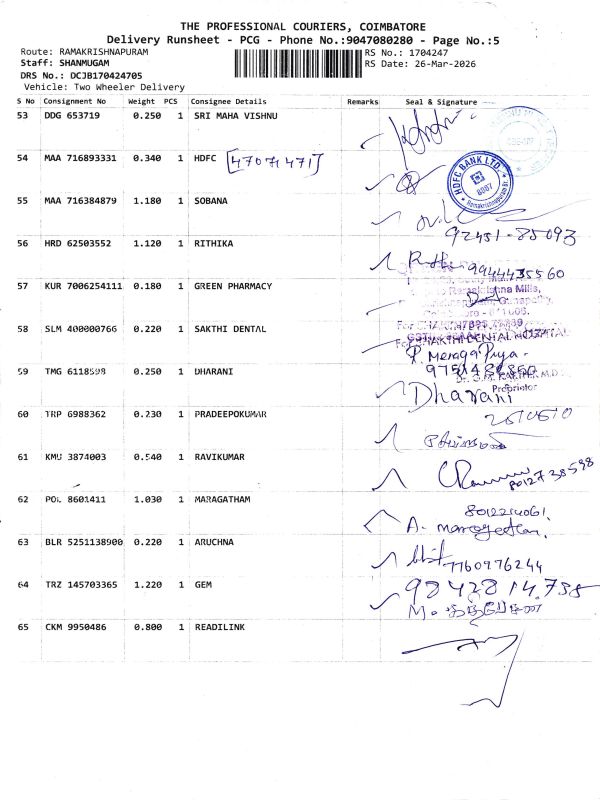 THE PROFESSIONAL COURIERS, COIMBATORE
Delivery Runsheet - PCG - Phone No.:9047080280 - Page No.:5
Route: RAMAKRISHNAPURAM
RS No.: 1704247
Staff: SHANMUGAM
RS Date: 26-Mar-2026
DRS No.: DCJB170424705
Vehicle: Two Wheeler Delivery
S No Consignment No Weight PCS Consignee Details Remarks Seal & Signature
53 DDG 653719 0.250 1 SRI MAHA VISHNU
54 MAA 716893331 0.340 1 HDFC
HDFC BANK LTD.
55 MAA 716384879 1.180 1 SOBANA
92451-85093
56 HRD 62503552 1.120 1 RITHIKA
9944435560
57 KUR 7006254111 0.180 1 GREEN PHARMACY
58 SLM 400000766 0.220 1 SAKTHI DENTAL
Proprietor
59 TMG 6118598 0.250 1 DHARANI
Dharani
60 TRP 6988362 0.230 1 PRADEEPOKUMAR
61 KMU 3874003 0.540 1 RAVIKUMAR
8012738598
62 POL 8601411 1.030 1 MARAGATHAM
8012214061
63 BLR 5251138900 0.220 1 ARUCHNA
7760976244
64 TRZ 145703365 1.220 1 GEM
9842814738
65 CKM 9950486 0.800 1 READILINK